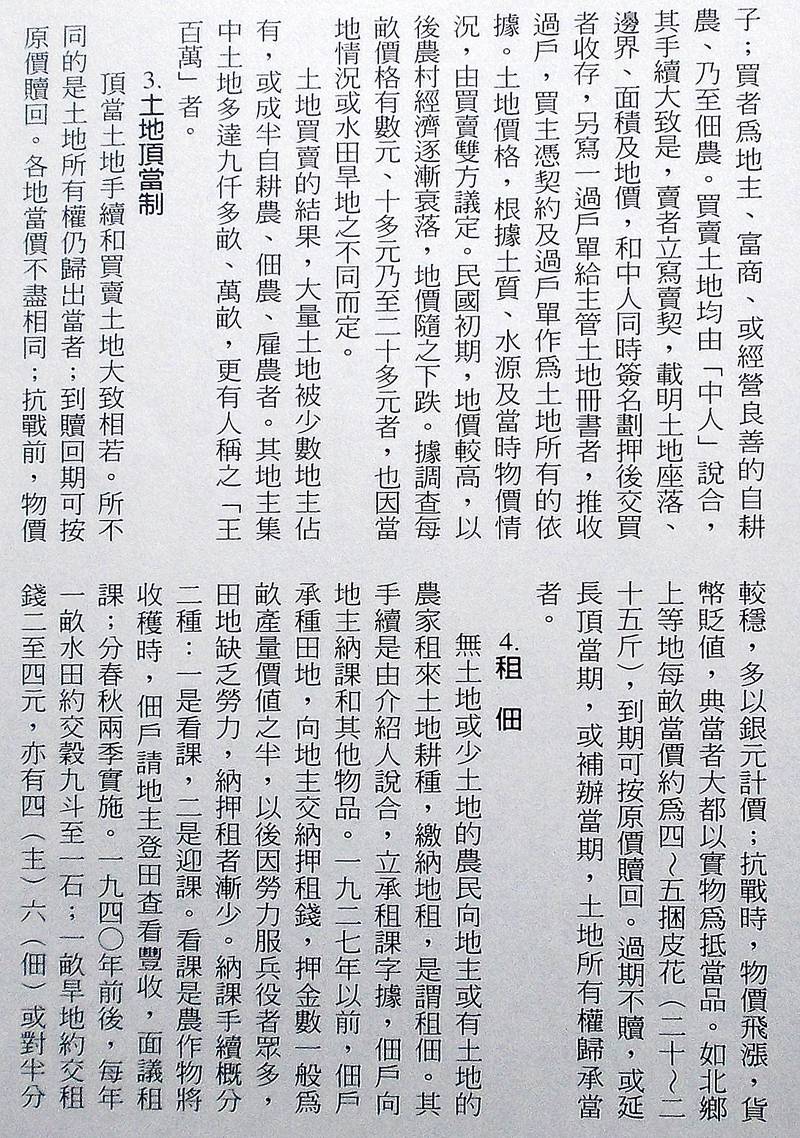 子；買者爲地主、富商、或經營良善的自耕
農、乃至佃農。買賣土地均由「中人」說合，
其手續大致是，賣者立寫賣契，載明土地座落、
邊界、面積及地價，和中人同時簽名劃押後交買
者收存，另寫一過戶單給主管土地冊書者，推收
過戶，買主憑契約及過戶單作爲土地所有的依
據。土地價格，根據土質、水源及當時物價情
況，由買賣雙方議定。民國初期，地價較高，以
後農村經濟逐漸衰落，地價隨之下跌。據調查每
畝價格有數元、十多元乃至二十多元者，也因當
地情況或水田旱地之不同而定。
土地買賣的結果，大量土地被少數地主佔
有，或成半自耕農、佃農、雇農者。其地主集
中土地多達九仟多畝、萬畝，更有人稱之「王
百萬」者。
3.土地頂當制
頂當土地手續和買賣土地大致相若。所不
同的是土地所有權仍歸出當者；到贖回期可按
原價贖回。各地當價不盡相同；抗戰前，物價
較穩，多以銀元計價；抗戰時，物價飛漲，貨
幣貶值，典當者大都以實物爲抵當品。如北鄉
上等地每畝當價約爲四～五捆皮花（二十～二
十五斤），到期可按原價贖回。過期不贖，或延
長頂當期，或補辦當期，土地所有權歸承當
者。
4.租　佃
無土地或少土地的農民向地主或有土地的
農家租來土地耕種，繳納地租，是謂租佃。其
手續是由介紹人說合，立承租課字據，佃戶向
地主納課和其他物品。一九二七年以前，佃戶
承種田地，向地主交納押租錢，押金數一般爲
畝產量價值之半，以後因勞力服兵役者眾多，
田地缺乏勞力，納押租者漸少。納課手續概分
二種：一是看課，二是迎課。看課是農作物將
收穫時，佃戶請地主登田查看豐收，面議租
課；分春秋兩季實施。一九四〇年前後，每年
一畝水田約交穀九斗至一石；一畝旱地約交租
錢二至四元，亦有四（主）六（佃）或對半分